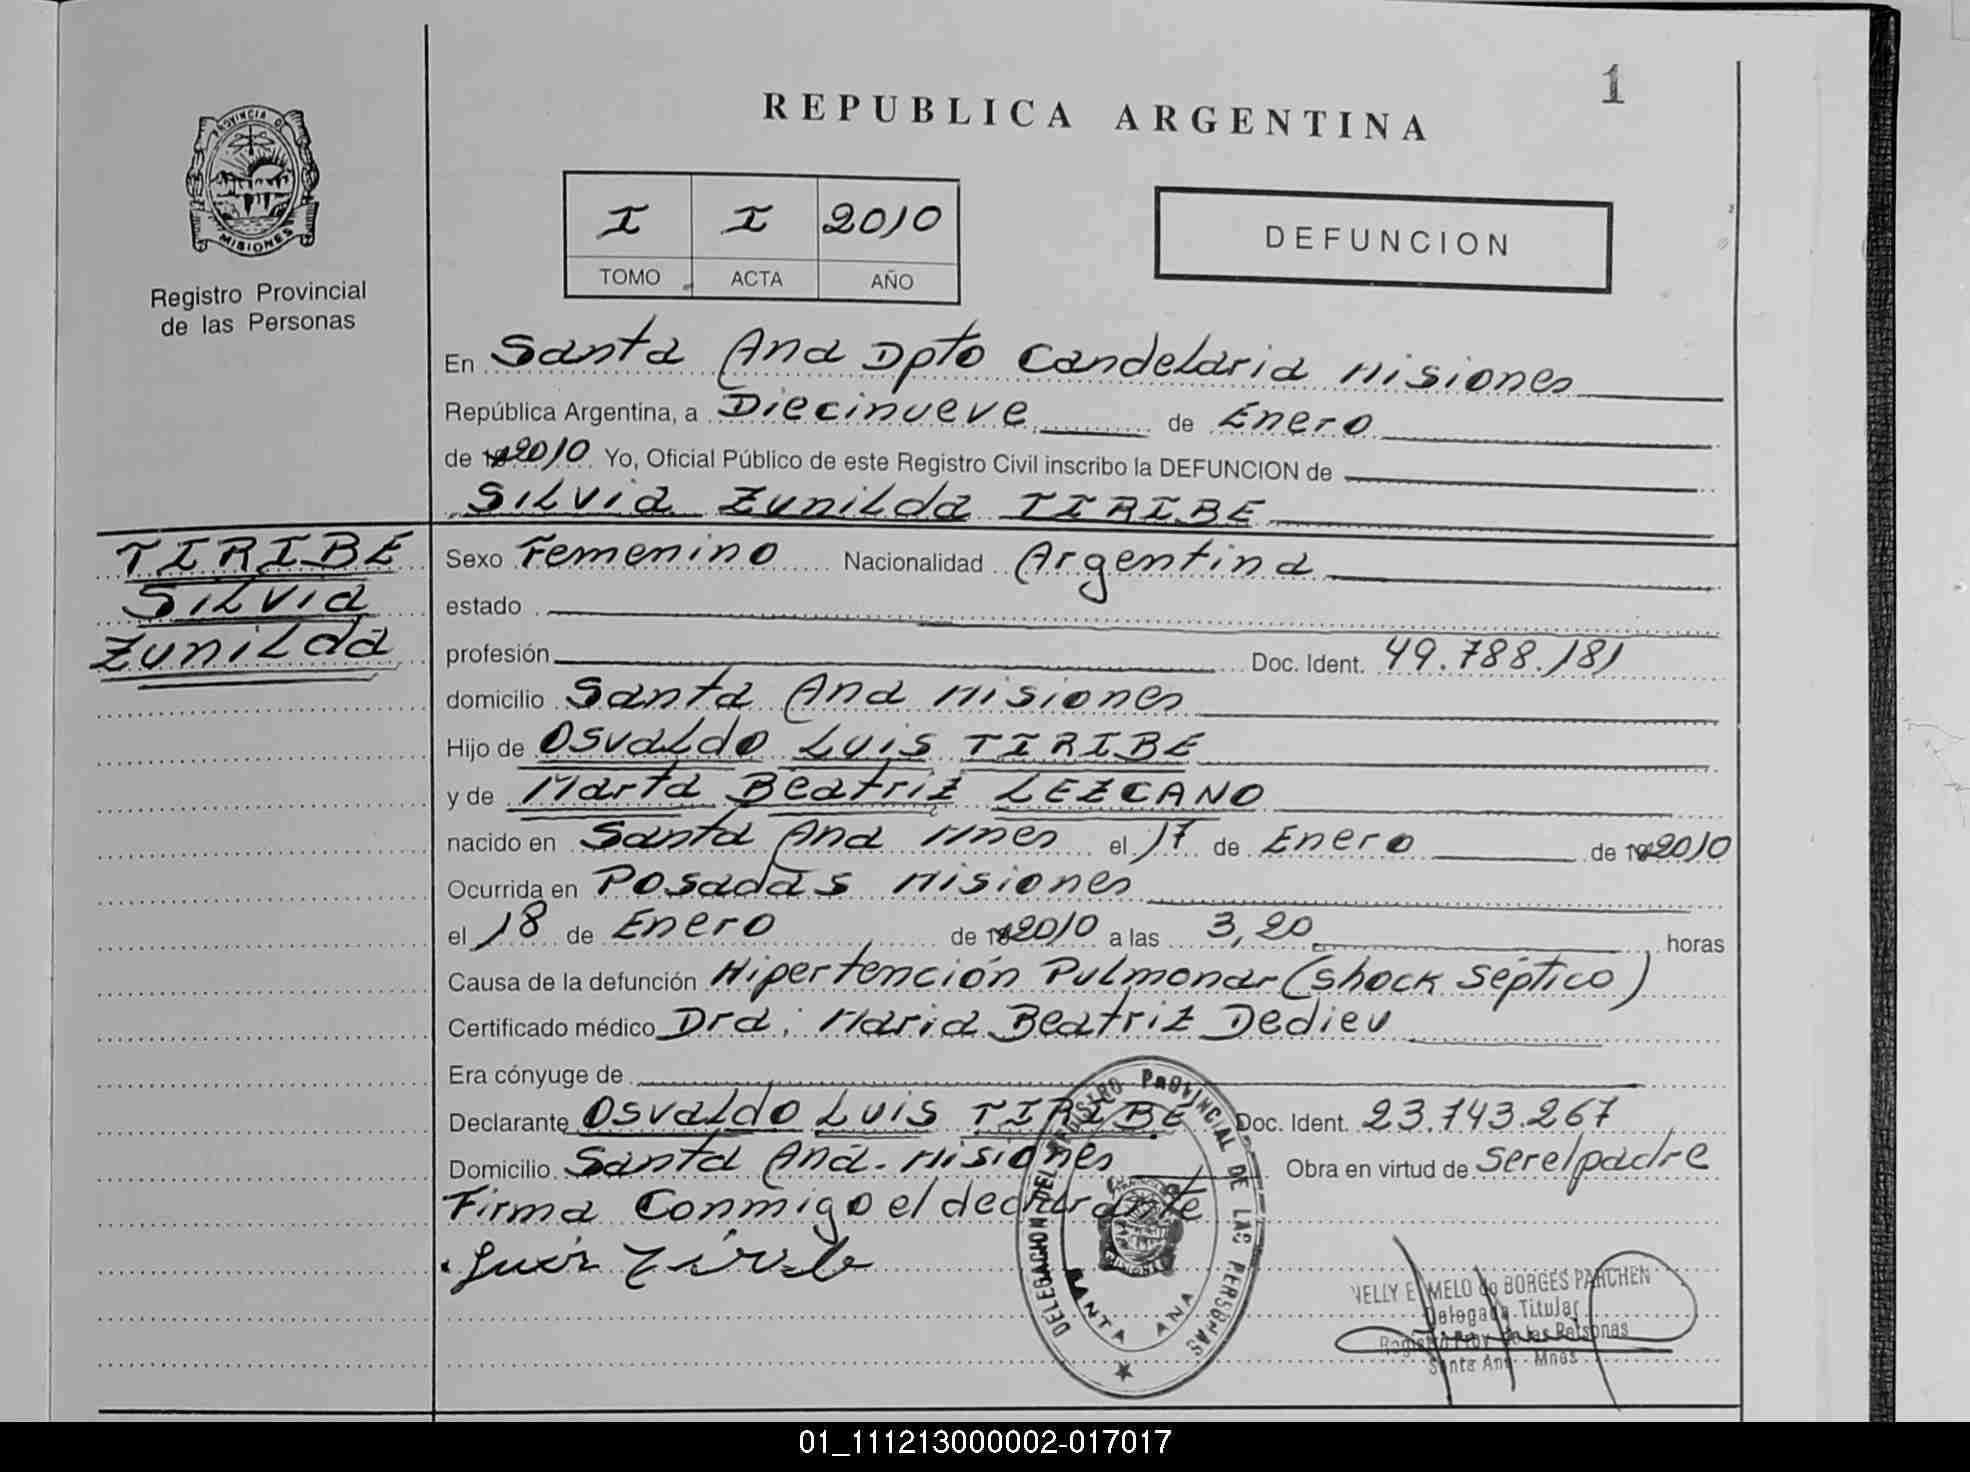 1
REPUBLICA ARGENTINA
PROVINCIA DE
MISIONES
Registro Provincial
de las Personas
I I 2010
TOMO ACTA AÑO
DEFUNCION
En Santa Ana Dpto Candelaria Misiones
República Argentina, a Diecinueve de Enero
de 2010 Yo, Oficial Público de este Registro Civil inscribo la DEFUNCION de
Silvia Zunilda TIRIBE
TIRIBE
Silvia
Zunilda
Sexo Femenino Nacionalidad Argentina
estado
profesión Doc. Ident. 49.788.181
domicilio Santa Ana Misiones
Hijo de Osvaldo Luis TIRIBE
y de Marta Beatriz LEZCANO
nacido en Santa Ana Mnes el 17 de Enero de 2010
Ocurrida en Posadas Misiones
el 18 de Enero de 2010 a las 3,20 horas
Causa de la defunción Hipertención Pulmonar (shock séptico)
Certificado médico Dra. Maria Beatriz Dedieu
Era cónyuge de
Declarante Osvaldo Luis TIRIBE Doc. Ident. 23.743.267
Domicilio Santa Ana. Misiones Obra en virtud de Ser el padre
Firma Conmigo el declarante
DELEGACION DEL REGISTRO PROVINCIAL DE LAS PERSONAS
SANTA ANA
NELLY E MELO de BORGES PARCHEN
Delegada Titular
Registro Prov de las Personas
Santa Ana - Mnes
01_111213000002-017017